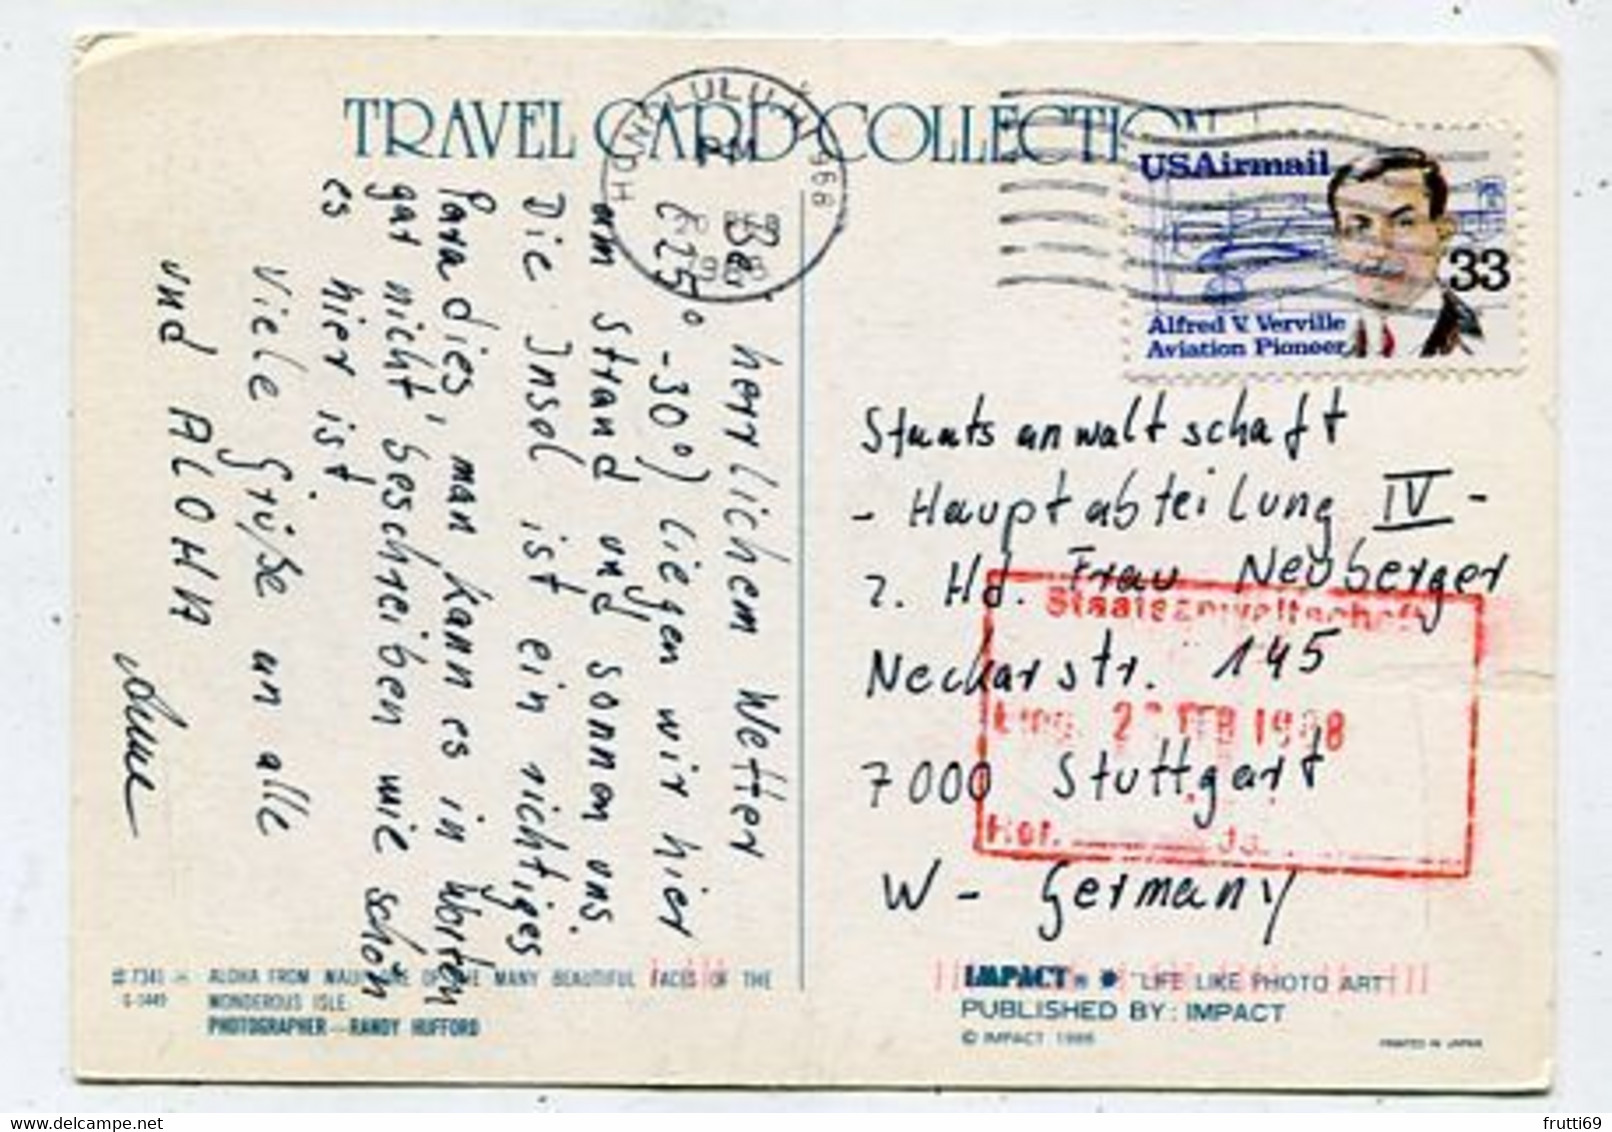 TRAVEL CARD COLLECTION
HONOLULU, HI 968
PM
1988
USAirmail
33
Alfred V. Verville
Aviation Pioneer
Bei herrlichem Wetter
(25° -30°) liegen wir hier
am Strand und sonnen uns.
Die Insel ist ein richtiges
Paradies, man kann es in Worten
gar nicht beschreiben wie schön
es hier ist.
Viele Grüße an alle
und ALOHA
Staatsanwaltschaft
- Hauptabteilung IV -
z. Hd. Frau Neuberger
Neckarstr. 145
7000 Stuttgart
W - Germany
Staatsanwaltschaft
Eing. FEB 1988
7341
ALOHA FROM MAUI, ONE OF THE MANY BEAUTIFUL FACES OF THE
WONDEROUS ISLE.
PHOTOGRAPHER—RANDY HUFFORD
IMPACT® "LIFE LIKE PHOTO ART"
PUBLISHED BY: IMPACT
© IMPACT 1986
PRINTED IN JAPAN
frutti69